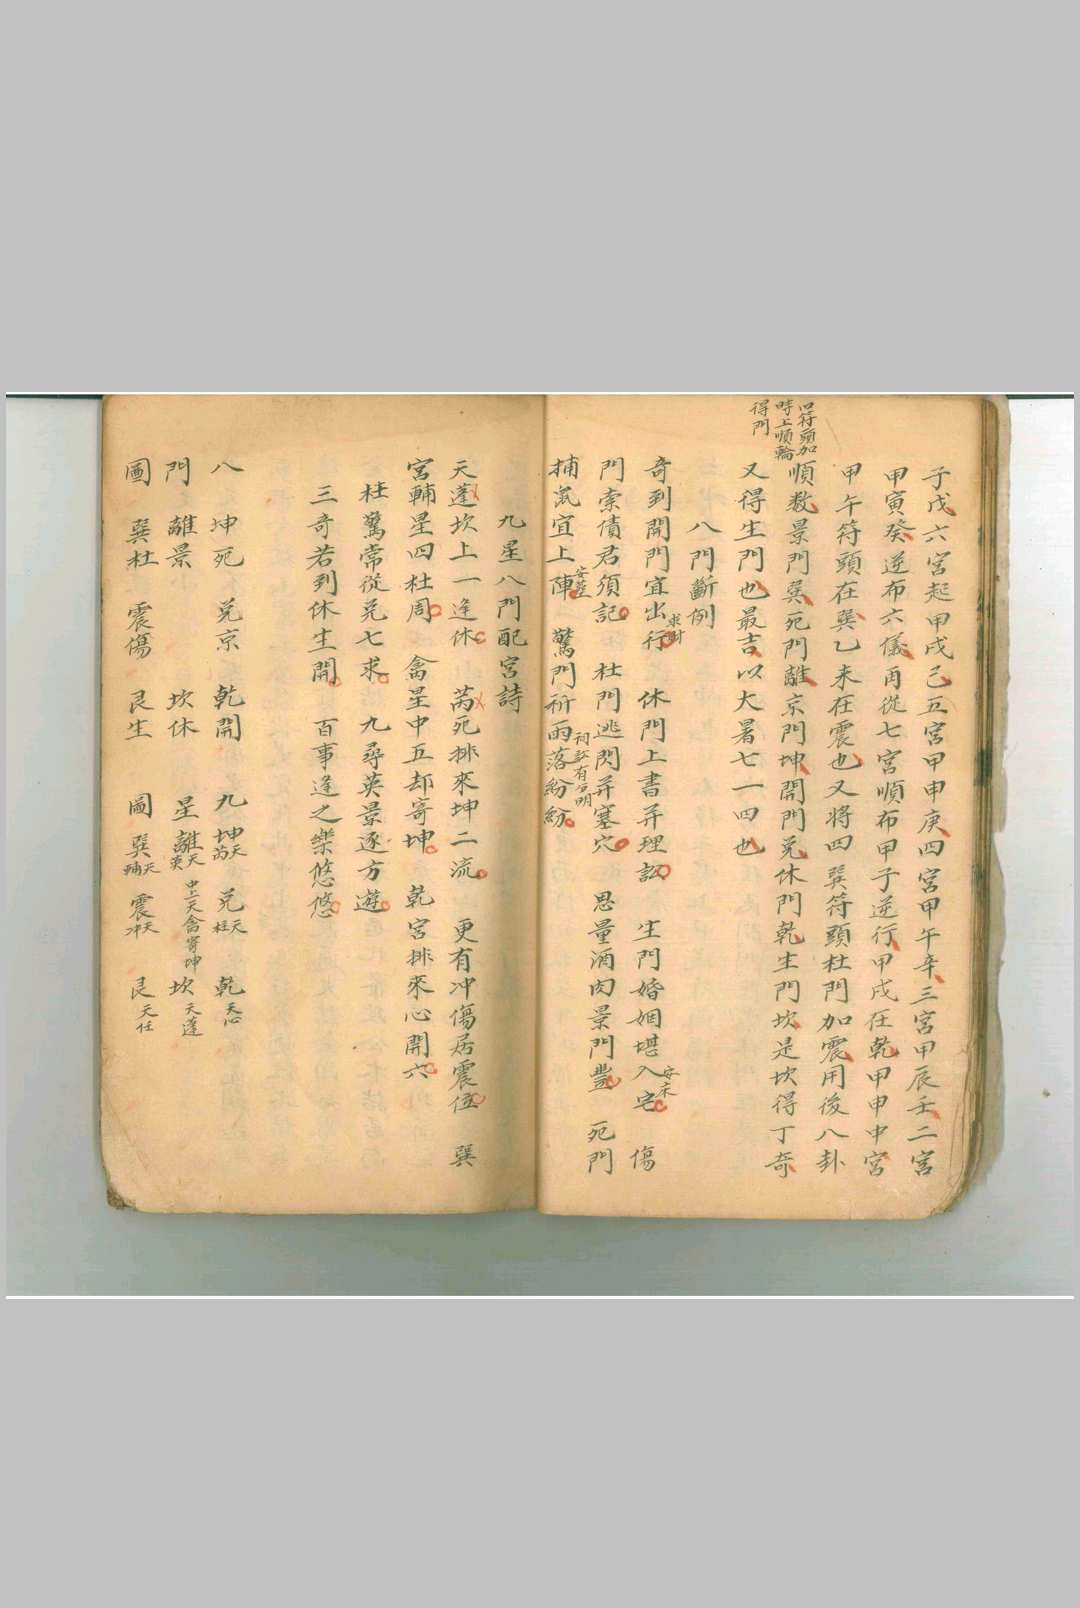 以符頭加
時上順輪
得門
子戊六宮起甲戌己五宮甲申庚四宮甲午辛三宮甲辰壬二宮
甲寅癸逆布六儀甫從七宮順布甲子逆行甲戌在乾甲申中宮
甲午符頭在巽乙未在震也又將四巽符頭杜門加震用後八卦
順数景門巽死門離京門坤開門兌休門乾生門坎是坎得丁奇
又得生門也最吉以大暑七一四也
八門斷例
奇到開門宜出行求財 休門上書并理訟 生門婚姻堪入宅安床 傷
門索債君須記 杜門逃閃并塞穴 思量酒肉景門豐 死門
捕氣宜上陣安葬 驚門祈雨落紛紛
九星八門配宮詩
天蓬坎上一逢休 芮死排來坤二流 更有冲傷居震位 巽
宮輔星四杜周 禽星中五却寄坤 乾宮排來心開六
柱驚常從兌七求 九尋英景逐方遊
三奇若到休生開 百事逢之樂悠悠
八 坤死 兌京 乾開 九 坤天芮 兌天柱 乾天心
門 離景 坎休 星 離天英 中五天禽寄坤 坎天蓬
圖 巽杜 震傷 艮生 圖 巽天輔 震天冲 艮天任